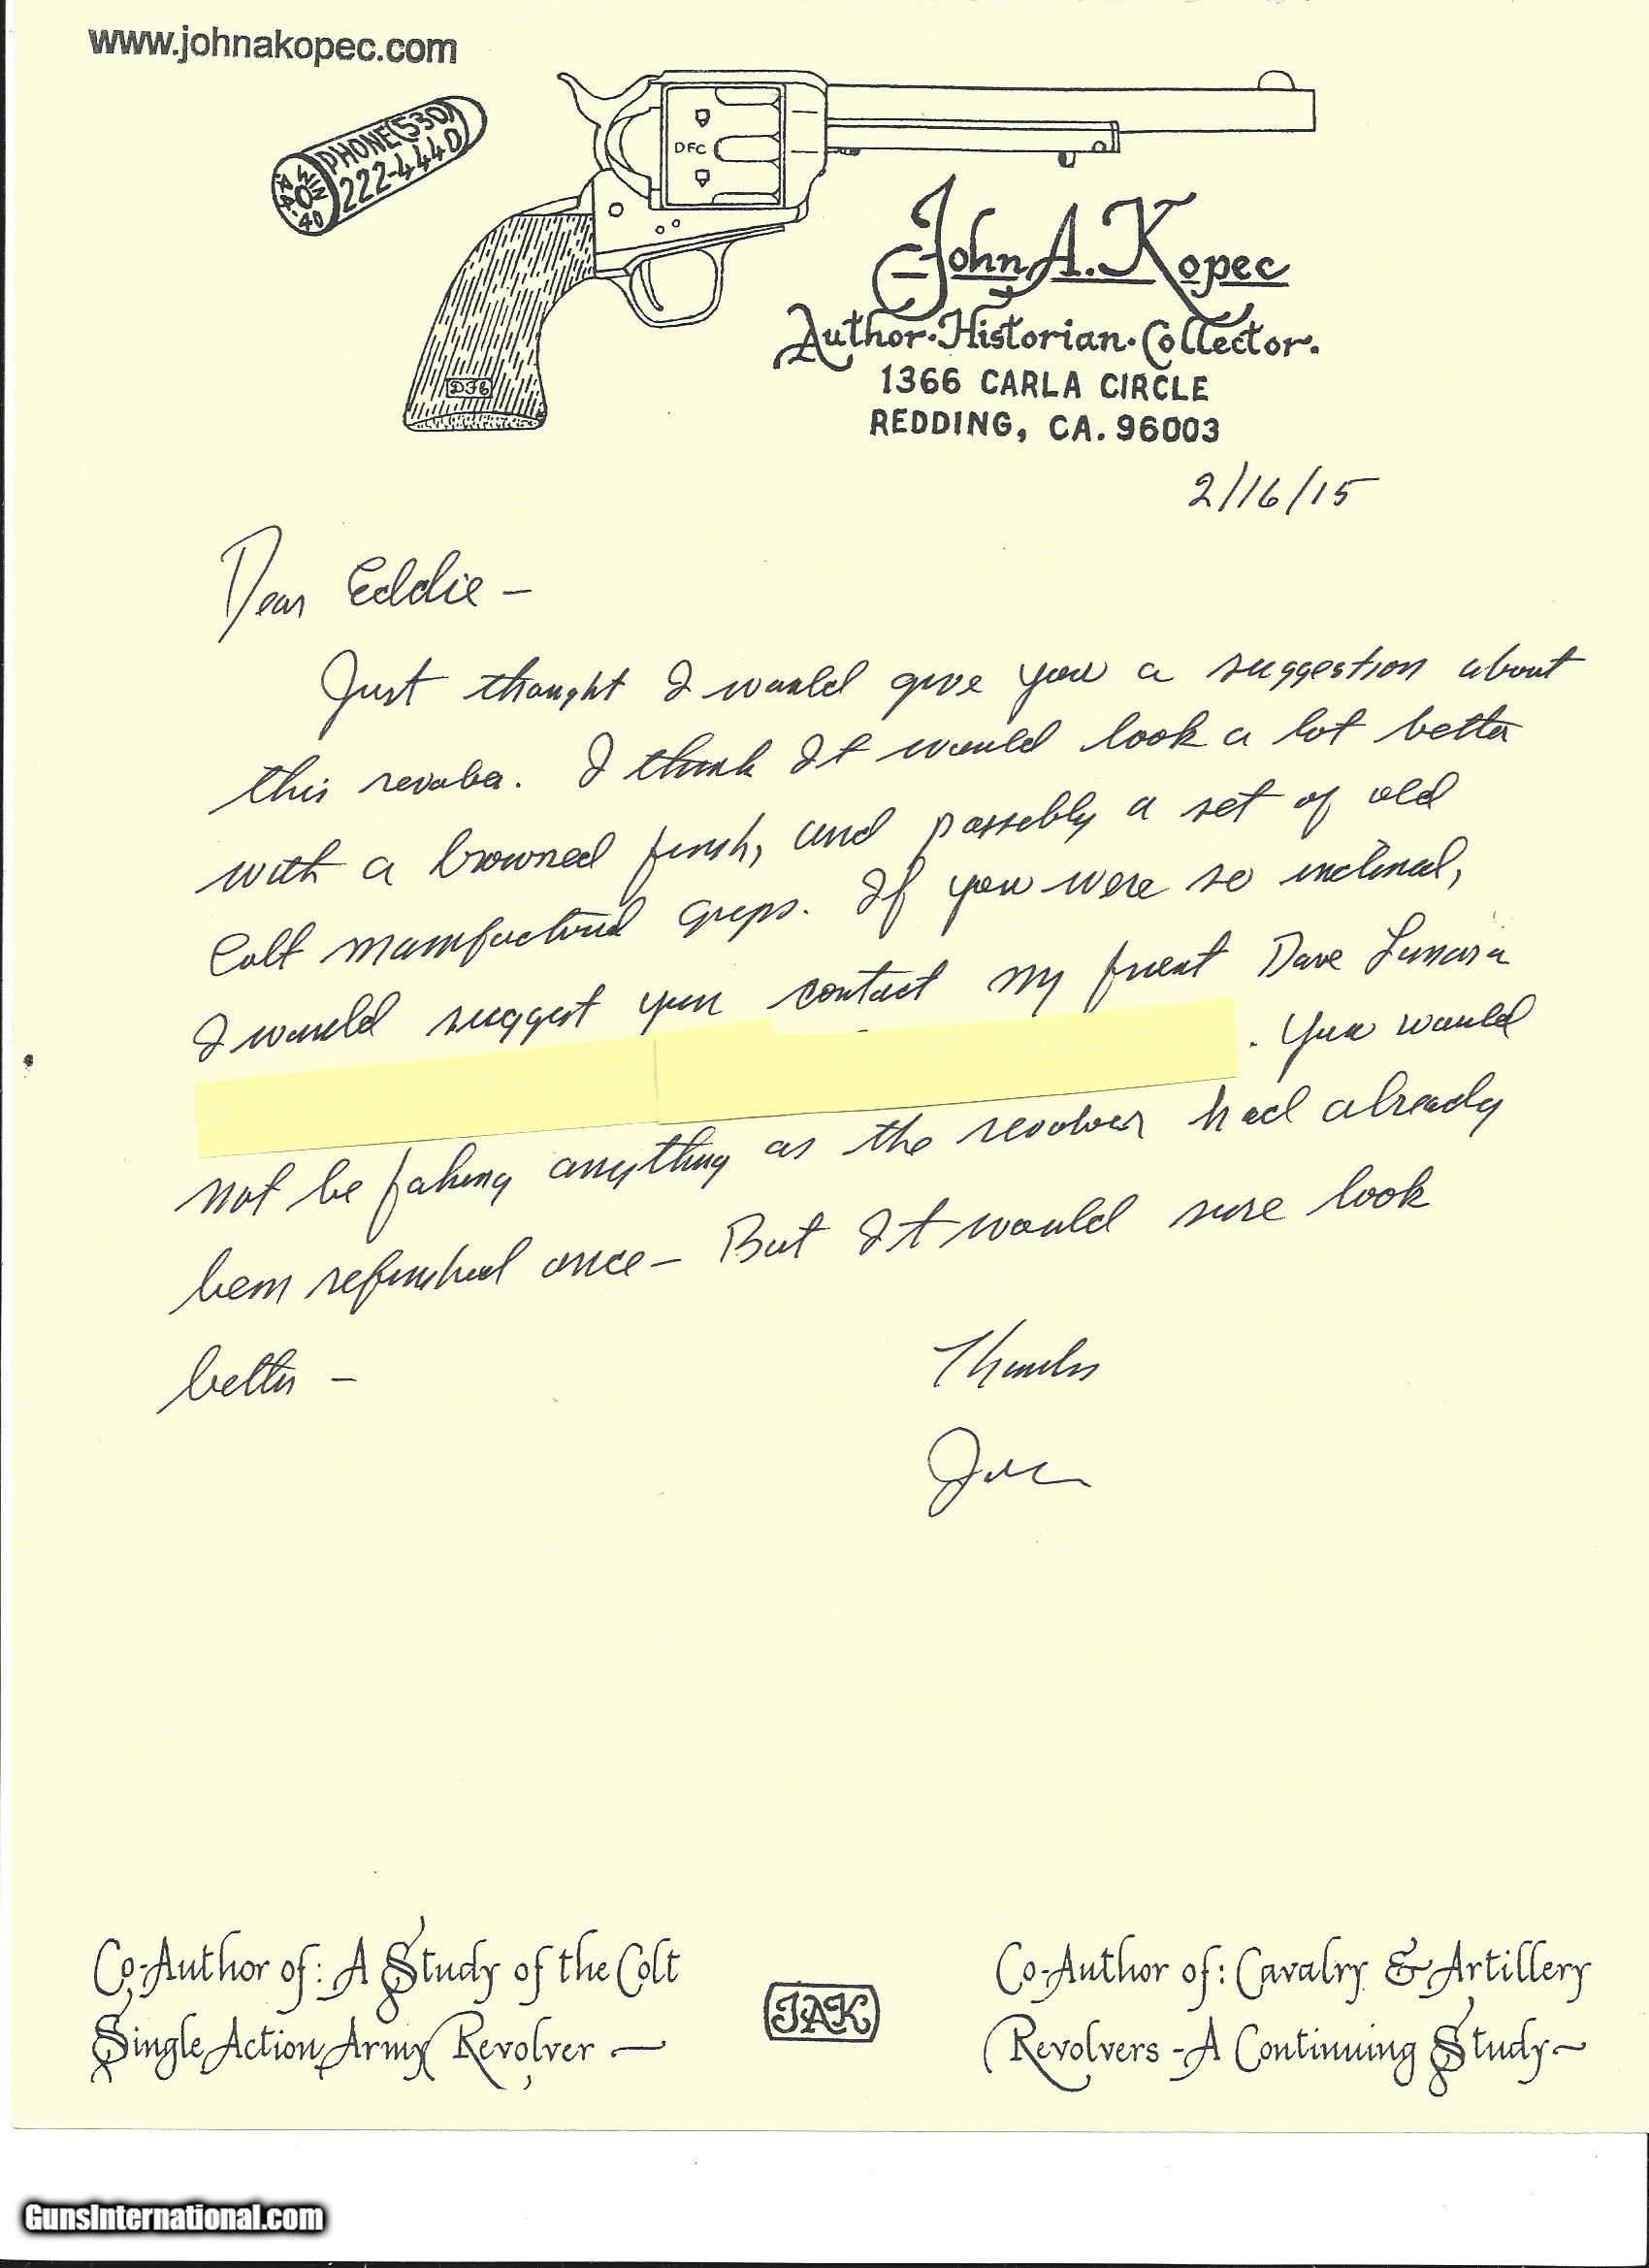 www.johnakopec.com
PHONE (530)
222-4440
W
40
DFC
John A. Kopec
Author·Historian·Collector.
1366 CARLA CIRCLE
REDDING, CA. 96003
DFC
2/16/15
Dear Eddie –
Just thought I would give you a suggestion about
this revolver. I think It would look a lot better
with a browned finish, and possibly a set of old
Colt manufactured grips. If you were so inclined,
I would suggest you contact my friend Dave
. You would
not be faking anything as the revolver had already
been refinished once – But It would sure look
better –
Thanks
John
Co-Author of: A Study of the Colt
Single Action Army Revolver —
JAK
Co-Author of: Cavalry & Artillery
Revolvers - A Continuing Study ~
GunsInternational.com